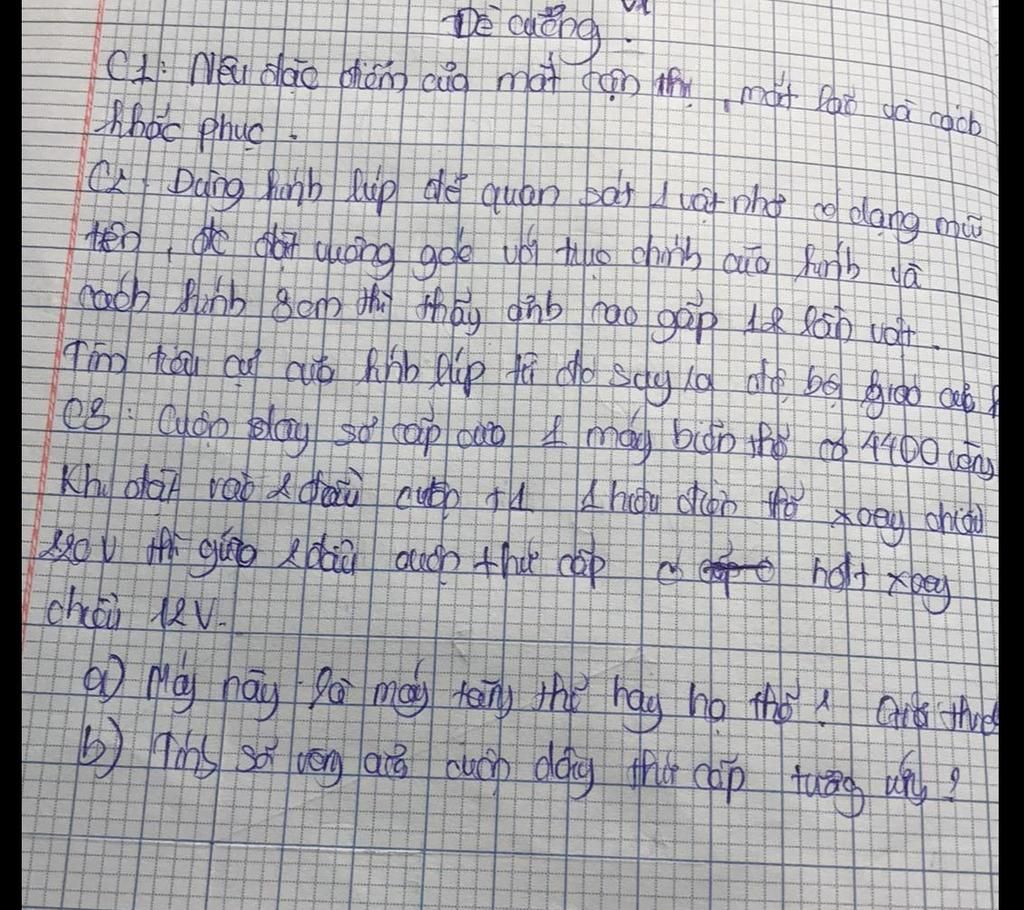 Đề cương
C1: Nêu đặc điểm của mắt cận thị, mắt lão và cách
khắc phục.
C2: Dùng kính lúp để quan sát 1 vật nhỏ có dạng mũi
tên, đc đặt vuông góc với trục chính của kính và
cách kính 8cm thì thấy ảnh cao gấp 12 lần vật.
Tìm tiêu cự của kính lúp từ đó suy ra độ bội giác của
C3: Cuộn dây sơ cấp của 1 máy biến thế có 4400 vòng
Khi đặt vào 2 đầu cuộn 1 hiệu điện thế xoay chiều
220V thì giữa 2 đầu cuộn thứ cấp có hđt xoay
chiều 12V.
a) Máy này là máy tăng thế hay hạ thế?
b) Tính số vòng của cuộn dây thứ cấp tương ứng?